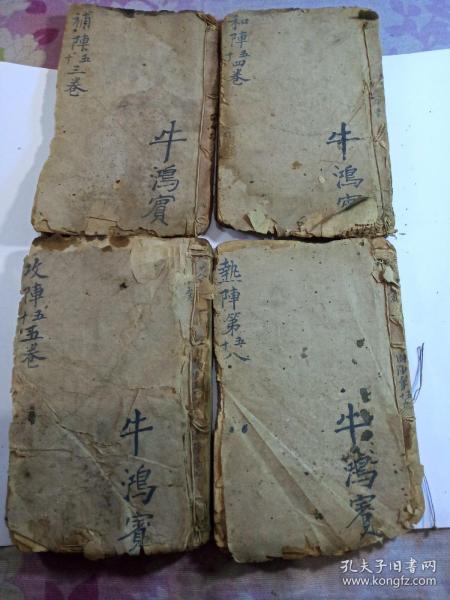 補陣五十三卷
牛鴻賓
和陣五十四卷
牛鴻賓
攻陣五十五卷
牛鴻賓
熱陣第五十八
牛鴻賓
孔夫子旧书网
www.kongfz.com